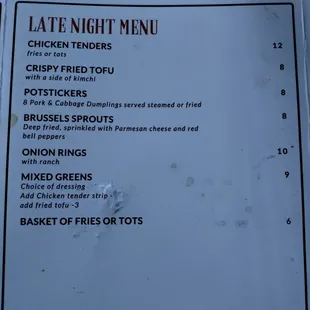 LATE NIGHT MENU
CHICKEN TENDERS 12
fries or tots
CRISPY FRIED TOFU 8
with a side of kimchi
POTSTICKERS 8
8 Pork & Cabbage Dumplings served steamed or fried
BRUSSELS SPROUTS 8
Deep fried, sprinkled with Parmesan cheese and red
bell peppers
ONION RINGS 10
with ranch
MIXED GREENS 9
Choice of dressing
Add Chicken tender strip -
add fried tofu -3
BASKET OF FRIES OR TOTS 6